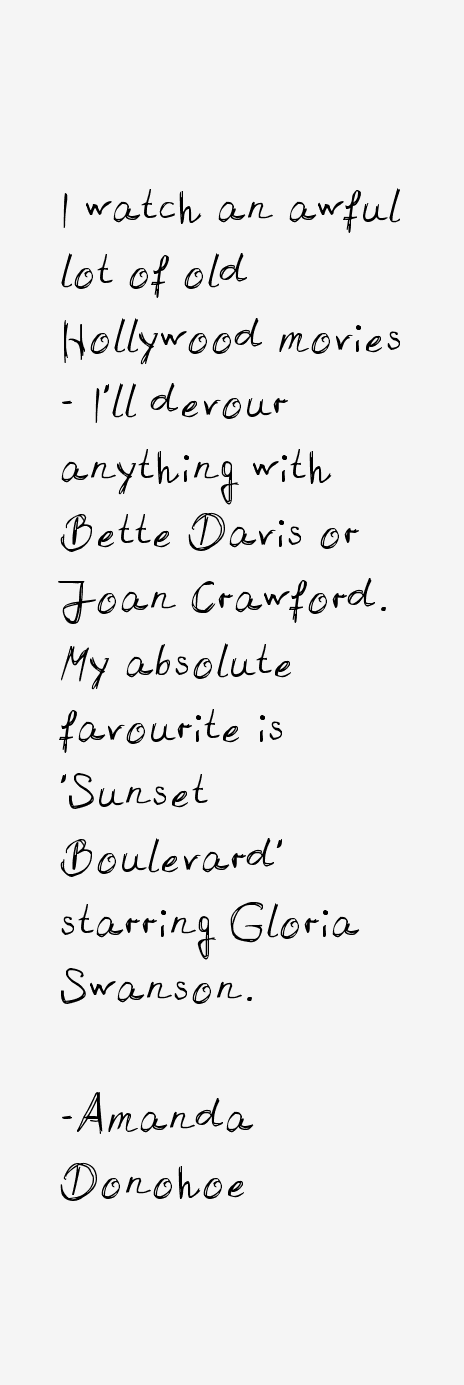 I watch an awful
lot of old
Hollywood movies
- I'll devour
anything with
Bette Davis or
Joan Crawford.
My absolute
favourite is
'Sunset
Boulevard'
starring Gloria
Swanson.
-Amanda
Donohoe